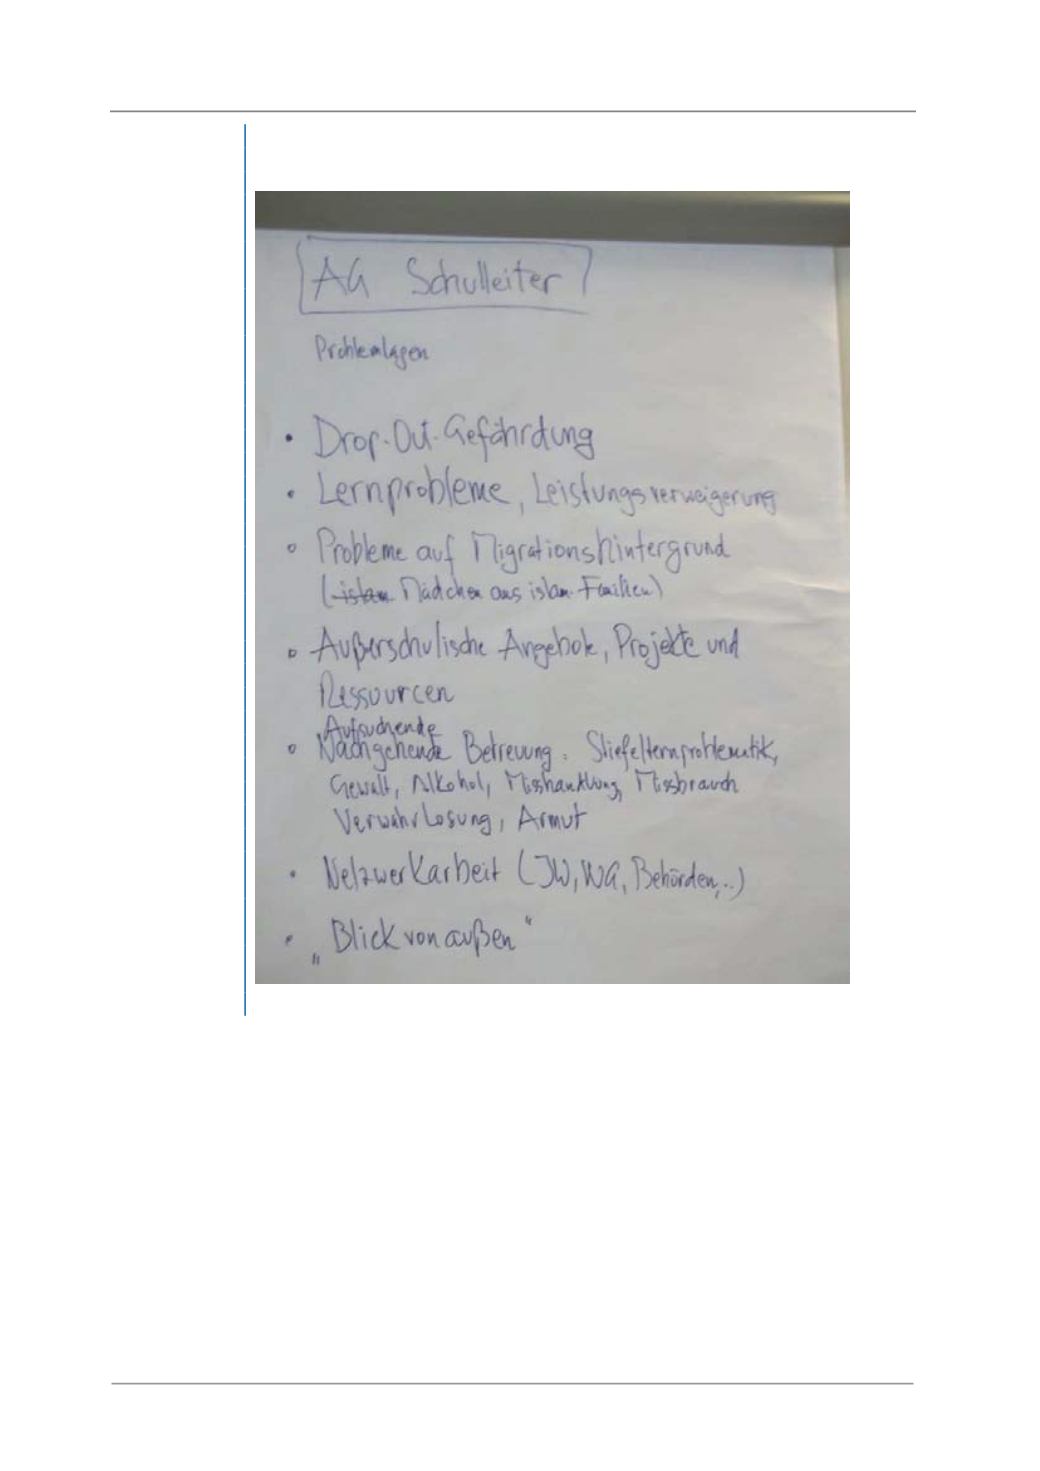 AG Schulleiter
Problemlagen
• Drop-Out-Gefährdung
• Lernprobleme, Leistungsverweigerung
• Probleme auf Migrationshintergrund
(islam. Mädchen aus islam. Familien)
• Außerschulische Angebote, Projekte und
Ressourcen
Aufsuchende
• Nachgehende Betreuung: Stiefelternproblematik,
Gewalt, Alkohol, Misshandlung, Missbrauch
Verwahrlosung, Armut
• Netzwerkarbeit (JW, WG, Behörden,..)
• „Blick von außen“